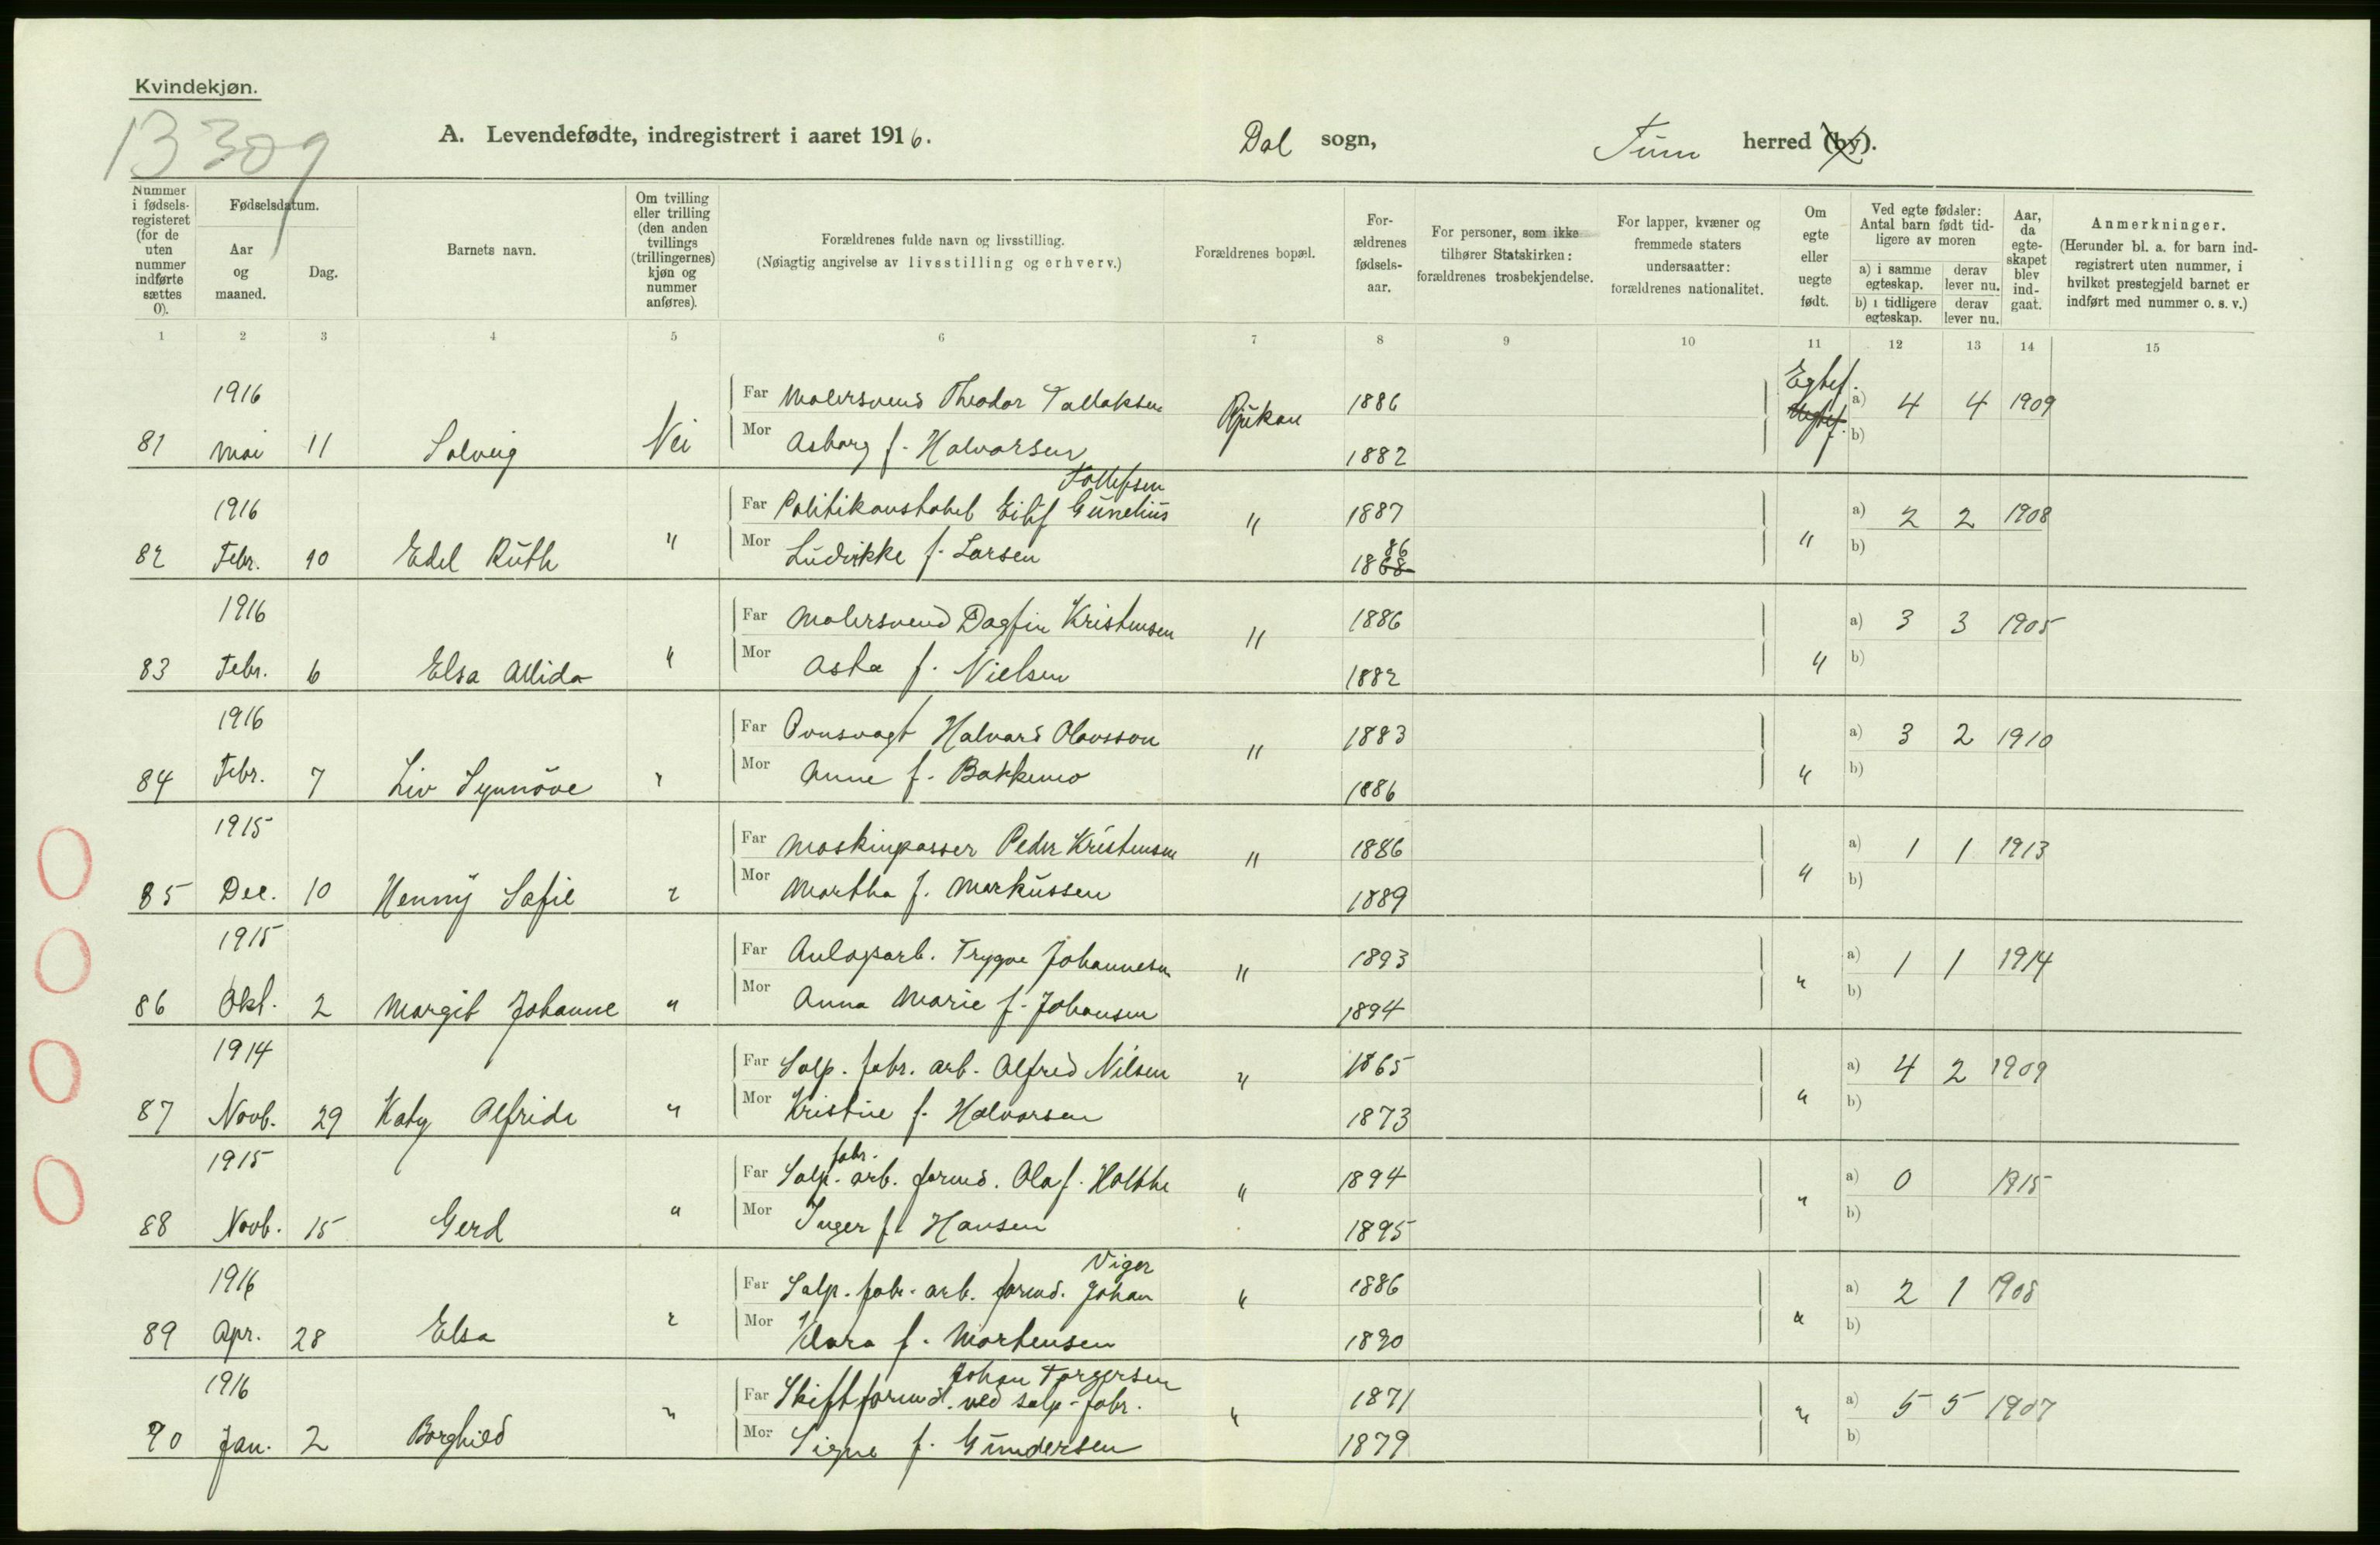 Kvindekjøn.
13309
A. Levendefødte, indregistrert i aaret 1916. Dal sogn, Tinn herred (by).
Nummer i fødselsregisteret (for de uten nummer indførte sættes 0).
Fødselsdatum.
Aar og maaned.
Dag.
Barnets navn.
Om tvilling eller trilling (den anden tvillings (trillingernes) kjøn og nummer anføres).
Forældrenes fulde navn og livsstilling.
(Nøiagtig angivelse av livsstilling og erhverv.)
Forældrenes bopæl.
For-ældrenes fødsels-aar.
For personer, som ikke tilhører Statskirken: forældrenes trosbekjendelse.
For lapper, kvæner og fremmede staters undersaatter: forældrenes nationalitet.
Om egte eller uegte født.
Ved egte fødsler: Antal barn født tidligere av moren
a) i samme egteskap. derav lever nu.
b) i tidligere egteskap. derav lever nu.
Aar, da egte-skapet blev ind-gaat.
Anmerkninger.
(Herunder bl. a. for barn indregistrert uten nummer, i hvilket prestegjeld barnet er indført med nummer o. s. v.)
1 2 3 4 5 6 7 8 9 10 11 12 13 14 15
1916 Far Malersvend Theodor Tallaksen Rjukan 1886 Egtef. a) 4 4 1909
81 Mai 11 Solveig Nei Mor Asborg f. Halvorsen 1882 b)
Tollefsen
1916 Far Politikonstabel Eilif Gunelius " 1887 " a) 2 2 1908
82 Febr. 10 Edel Ruth " Mor Ludvikke f. Larsen 1868 86 b)
1916 Far Malersvend Dagfin Kristensen " 1886 a) 3 3 1905
83 Febr. 6 Elsa Allida " Mor Asta f. Nielsen 1882 " b)
1916 Far Ovnsvagt Halvard Olavsson " 1883 a) 3 2 1910
84 Febr. 7 Liv Synnöve " Mor Anne f. Bakkemo 1886 " b)
1915 Far Maskinpasser Peder Kristensen " 1886 a) 1 1 1913
85 Dec. 10 Henny Sofie " Mor Martha f. Markussen 1889 " b)
1915 Far Anlægsarb. Trygve Johannesen " 1893 a) 1 1 1914
86 Okt. 2 Margit Johanne " Mor Anna Marie f. Johansen 1894 " b)
1914 Far Salp. fabr. arb. Alfred Nilsen " 1865 a) 4 2 1909
87 Novb. 29 Katy Alfrida " Mor Kristine f. Halvorsen 1873 " b)
fabr.
1915 Far Salp. arb. formd. Olaf Holthe " 1894 a) 0 1915
88 Novb. 15 Gerd " Mor Inger f. Hansen 1895 " b)
Viger
1916 Far Salp. fabr. arb. formd. Johan " 1886 a) 2 1 1908
89 Apr. 28 Elsa " Mor Klara f. Mortensen 1890 " b)
Johan Torgersen
1916 Far Skiftformd. ved salp-fabr. " 1871 " a) 5 5 1907
90 Jan. 2 Borghild " Mor Signe f. Gundersen 1879 b)